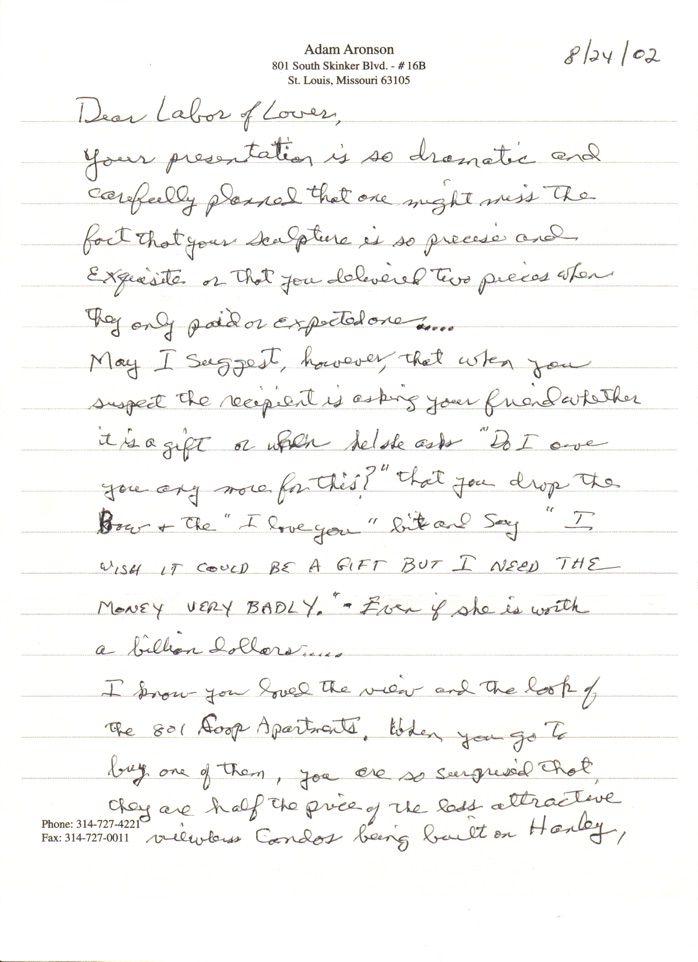 Adam Aronson
801 South Skinker Blvd. - # 16B
St. Louis, Missouri 63105
8/24/02
Dear Labor of Lover,
Your presentation is so dramatic and
carefully planned that one might miss the
fact that your sculpture is so precise and
Exquisite or that you delivered two pieces when
they only paid or expected one.....
May I Suggest, however, that when you
suspect the recipient is asking your friend whether
it is a gift or when he/she asks "Do I owe
you any more for this?" that you drop the
Bow + the "I love you" bit and Say "I
WISH IT COULD BE A GIFT BUT I NEED THE
MONEY VERY BADLY." - Even if she is worth
a billion dollars.....
I know you loved the view and the look of
the 801 Coop Apartments. When you go to
buy one of them, you are so surprised that
they are half the price of the less attractive
Phone: 314-727-4221
Fax: 314-727-0011
viewless Condos being built on Hanley,